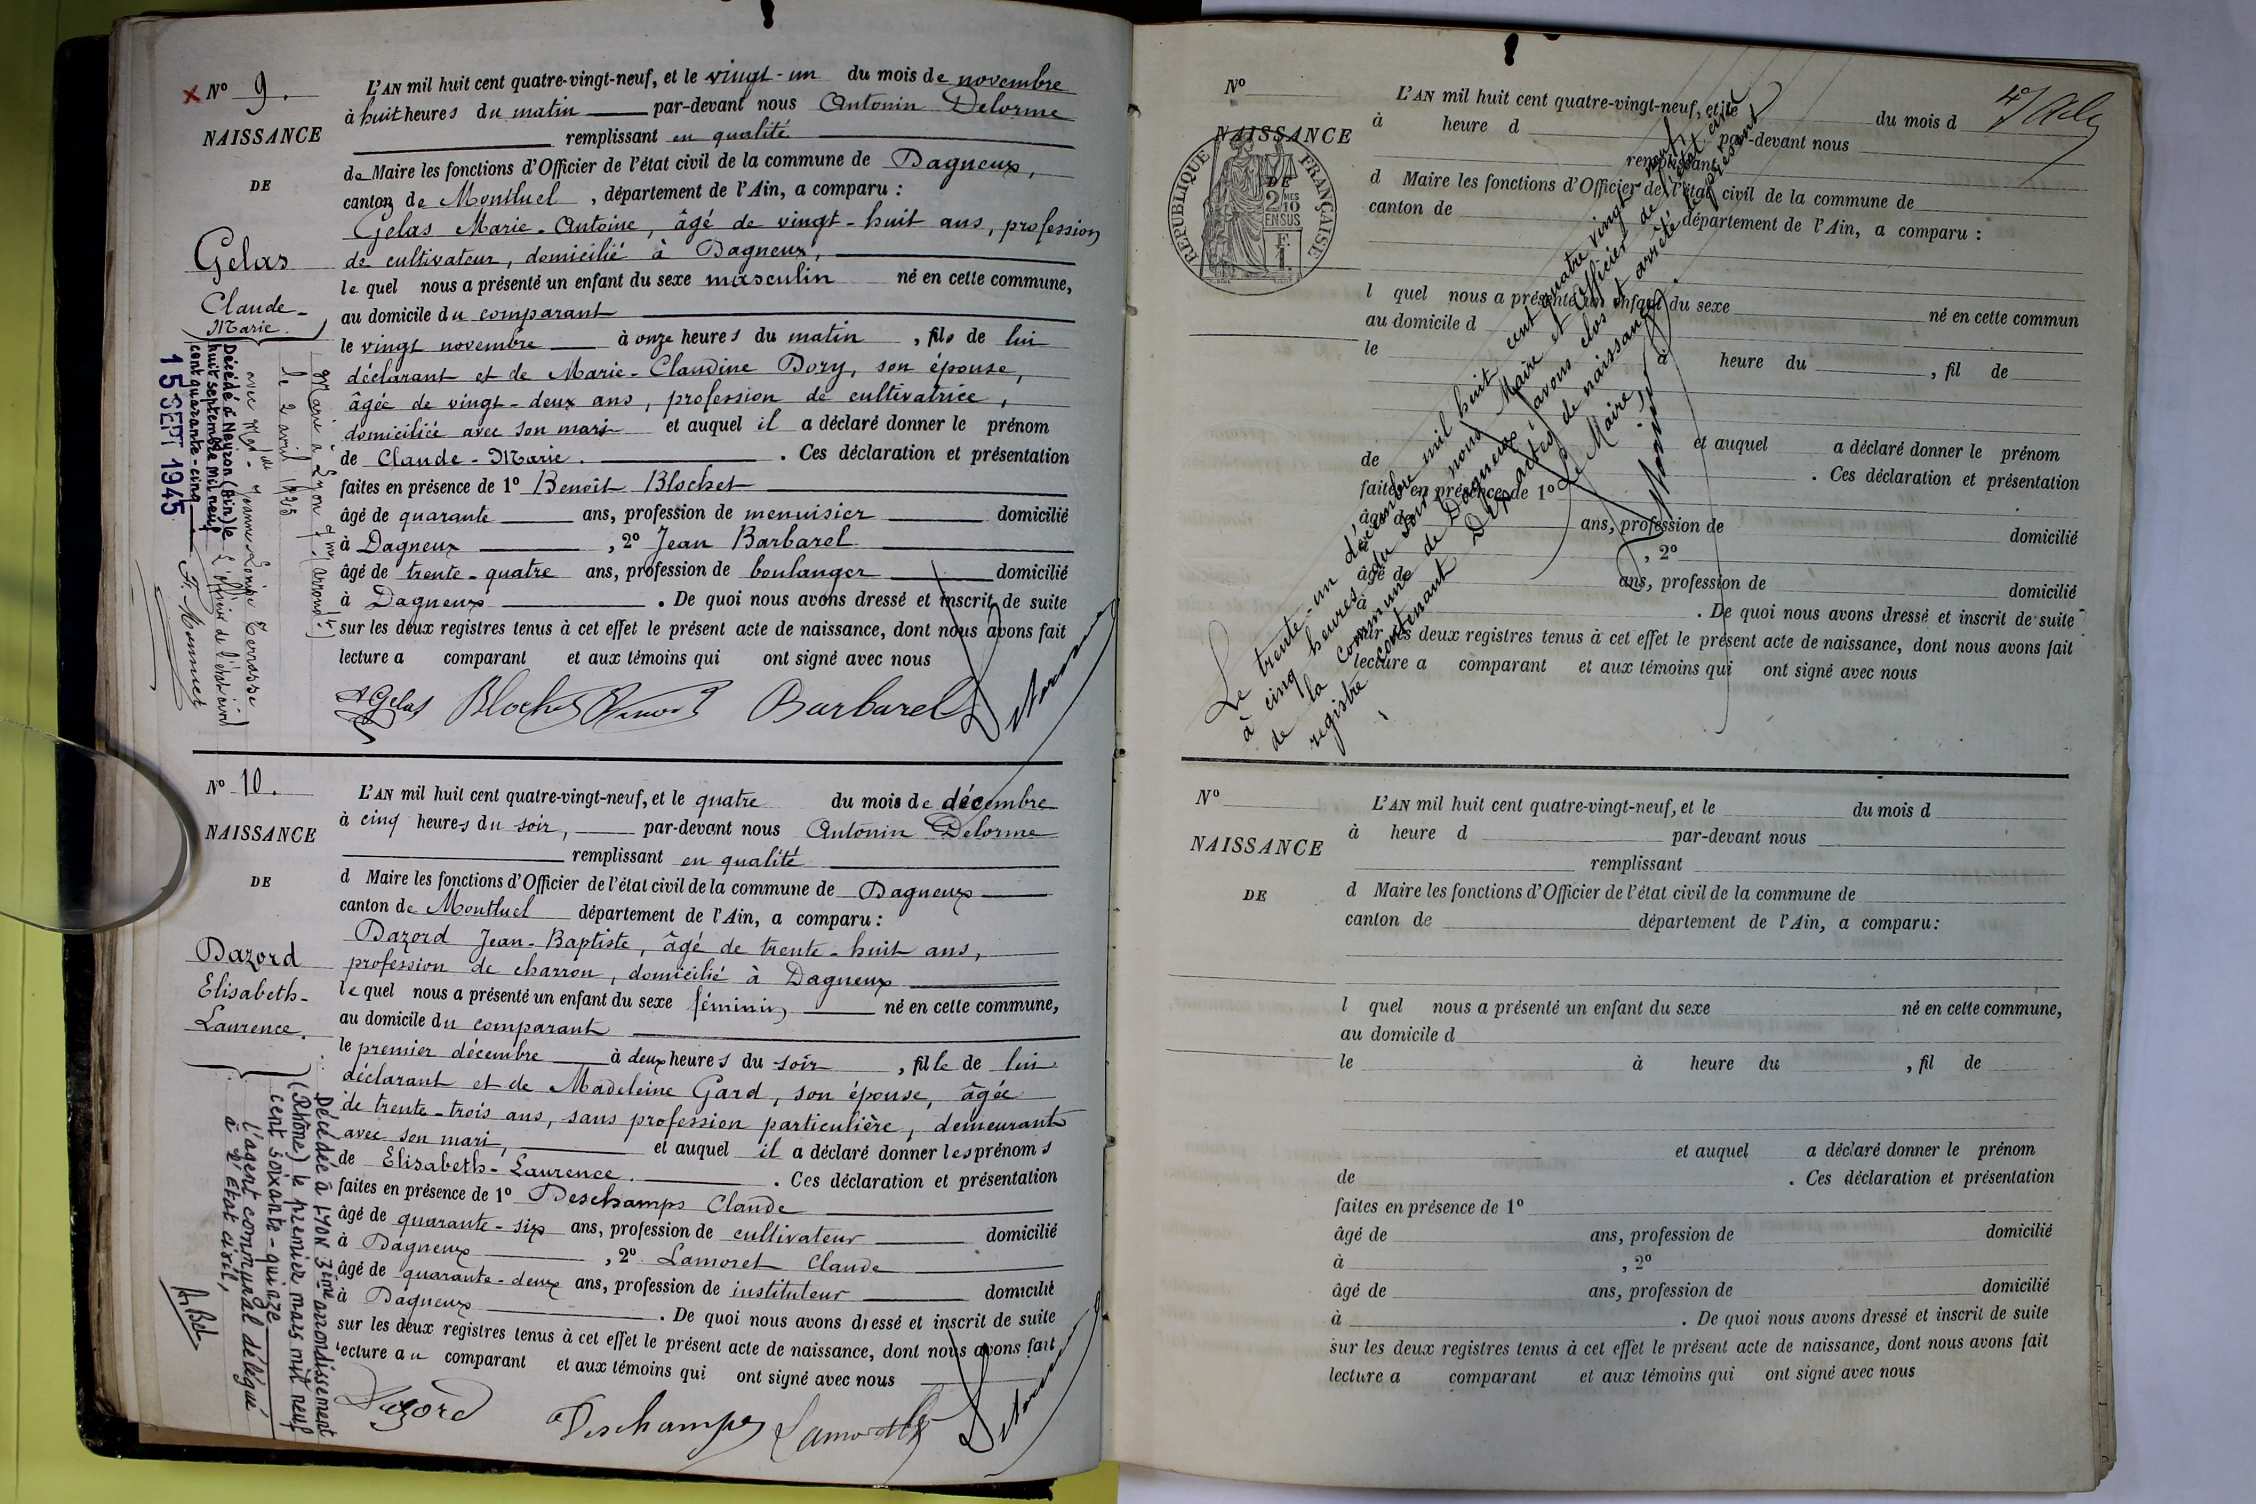 N° 9.
NAISSANCE
DE
Gelas
Claude-
Marie.
L'AN mil huit cent quatre-vingt-neuf, et le vingt-un du mois de novembre
à huit heures du matin par-devant nous Antonin Delorme
remplissant en qualité
de Maire les fonctions d'Officier de l'état civil de la commune de Dagneux,
canton de Montluel, département de l'Ain, a comparu :
Gelas Marie-Antoine, âgé de vingt-huit ans, profession
de cultivateur, domicilié à Dagneux,
lequel nous a présenté un enfant du sexe masculin né en cette commune,
au domicile du comparant
le vingt novembre à onze heures du matin, fils de lui
déclarant et de Marie-Claudine Dory, son épouse,
âgée de vingt-deux ans, profession de cultivatrice,
domiciliée avec son mari et auquel il a déclaré donner le prénom
de Claude-Marie. Ces déclaration et présentation
faites en présence de 1° Benoît Blochet
âgé de quarante ans, profession de menuisier domicilié
à Dagneux, 2° Jean Barbarel
âgé de trente-quatre ans, profession de boulanger domicilié
à Dagneux. De quoi nous avons dressé et inscrit de suite
sur les deux registres tenus à cet effet le présent acte de naissance, dont nous avons fait
lecture a comparant et aux témoins qui ont signé avec nous
Gelas Blochet Benoit Barbarel Delorme
Marié à Lyon 7me arrondt
le 2 avril 1925
avec Jeanne Louise Terrasse
L'officier de l'état civil
Décédé à Neyron (Ain) le
huit septembre mil neuf
cent quarante-cinq
15 SEPT 1945
N° 10.
NAISSANCE
DE
Dazord
Elisabeth-
Laurence.
L'AN mil huit cent quatre-vingt-neuf, et le quatre du mois de décembre
à cinq heures du soir, par-devant nous Antonin Delorme
remplissant en qualité
d Maire les fonctions d'Officier de l'état civil de la commune de Dagneux
canton de Montluel département de l'Ain, a comparu :
Dazord Jean-Baptiste, âgé de trente-huit ans,
profession de charron, domicilié à Dagneux
lequel nous a présenté un enfant du sexe féminin né en cette commune,
au domicile du comparant
le premier décembre à deux heures du soir, fille de lui
déclarant et de Madeleine Gard, son épouse, âgée
de trente-trois ans, sans profession particulière, demeurant
avec son mari, et auquel il a déclaré donner les prénoms
de Elisabeth-Laurence. Ces déclaration et présentation
faites en présence de 1° Deschamps Claude
âgé de quarante-six ans, profession de cultivateur domicilié
à Dagneux, 2° Lamoret Claude
âgé de quarante-deux ans, profession de instituteur domicilié
à Dagneux. De quoi nous avons dressé et inscrit de suite
sur les deux registres tenus à cet effet le présent acte de naissance, dont nous avons fait
lecture au comparant et aux témoins qui ont signé avec nous
Dazord Deschamps Lamoret Delorme
Décédée à LYON 3ième arrondissement
(Rhône) le premier mars mil neuf
cent soixante-quinze
l'agent communal délégué
à l'Etat civil,
N°
NAISSANCE
DE
RÉPUBLIQUE FRANÇAISE
2/10 MES
EN SUS
L'AN mil huit cent quatre-vingt-neuf, et le du mois d
à heure d par-devant nous
remplissant
d Maire les fonctions d'Officier de l'état civil de la commune de
canton de département de l'Ain, a comparu :
l quel nous a présenté un enfant du sexe né en cette commun
au domicile d
le à heure du , fil de
et auquel a déclaré donner le prénom
de . Ces déclaration et présentation
faites en présence de 1°
âgé de ans, profession de domicilié
à , 2°
âgé de ans, profession de domicilié
à . De quoi nous avons dressé et inscrit de suite
sur les deux registres tenus à cet effet le présent acte de naissance, dont nous avons fait
lecture a comparant et aux témoins qui ont signé avec nous
Le trente-un décembre mil huit cent quatre vingt neuf
à cinq heures du soir nous Maire et Officier de l'état civil
de la commune de Dagneux, avons clos et arrêté le présent
registre contenant Dix actes de naissance.
Le Maire,
Delorme
N°
NAISSANCE
DE
L'AN mil huit cent quatre-vingt-neuf, et le du mois d
à heure d par-devant nous
remplissant
d Maire les fonctions d'Officier de l'état civil de la commune de
canton de département de l'Ain, a comparu:
l quel nous a présenté un enfant du sexe né en cette commune,
au domicile d
le à heure du , fil de
et auquel a déclaré donner le prénom
de . Ces déclaration et présentation
faites en présence de 1°
âgé de ans, profession de domicilié
à , 2°
âgé de ans, profession de domicilié
à . De quoi nous avons dressé et inscrit de suite
sur les deux registres tenus à cet effet le présent acte de naissance, dont nous avons fait
lecture a comparant et aux témoins qui ont signé avec nous